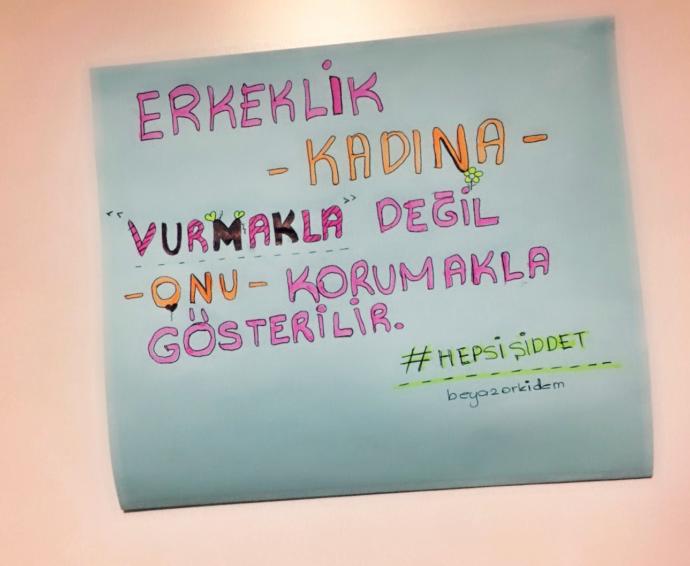 ERKEKLİK
- KADINA -
"VURMAKLA" DEĞİL
- ONU - KORUMAKLA
GÖSTERİLİR.
#HEPSİŞİDDET
beyazorkidem